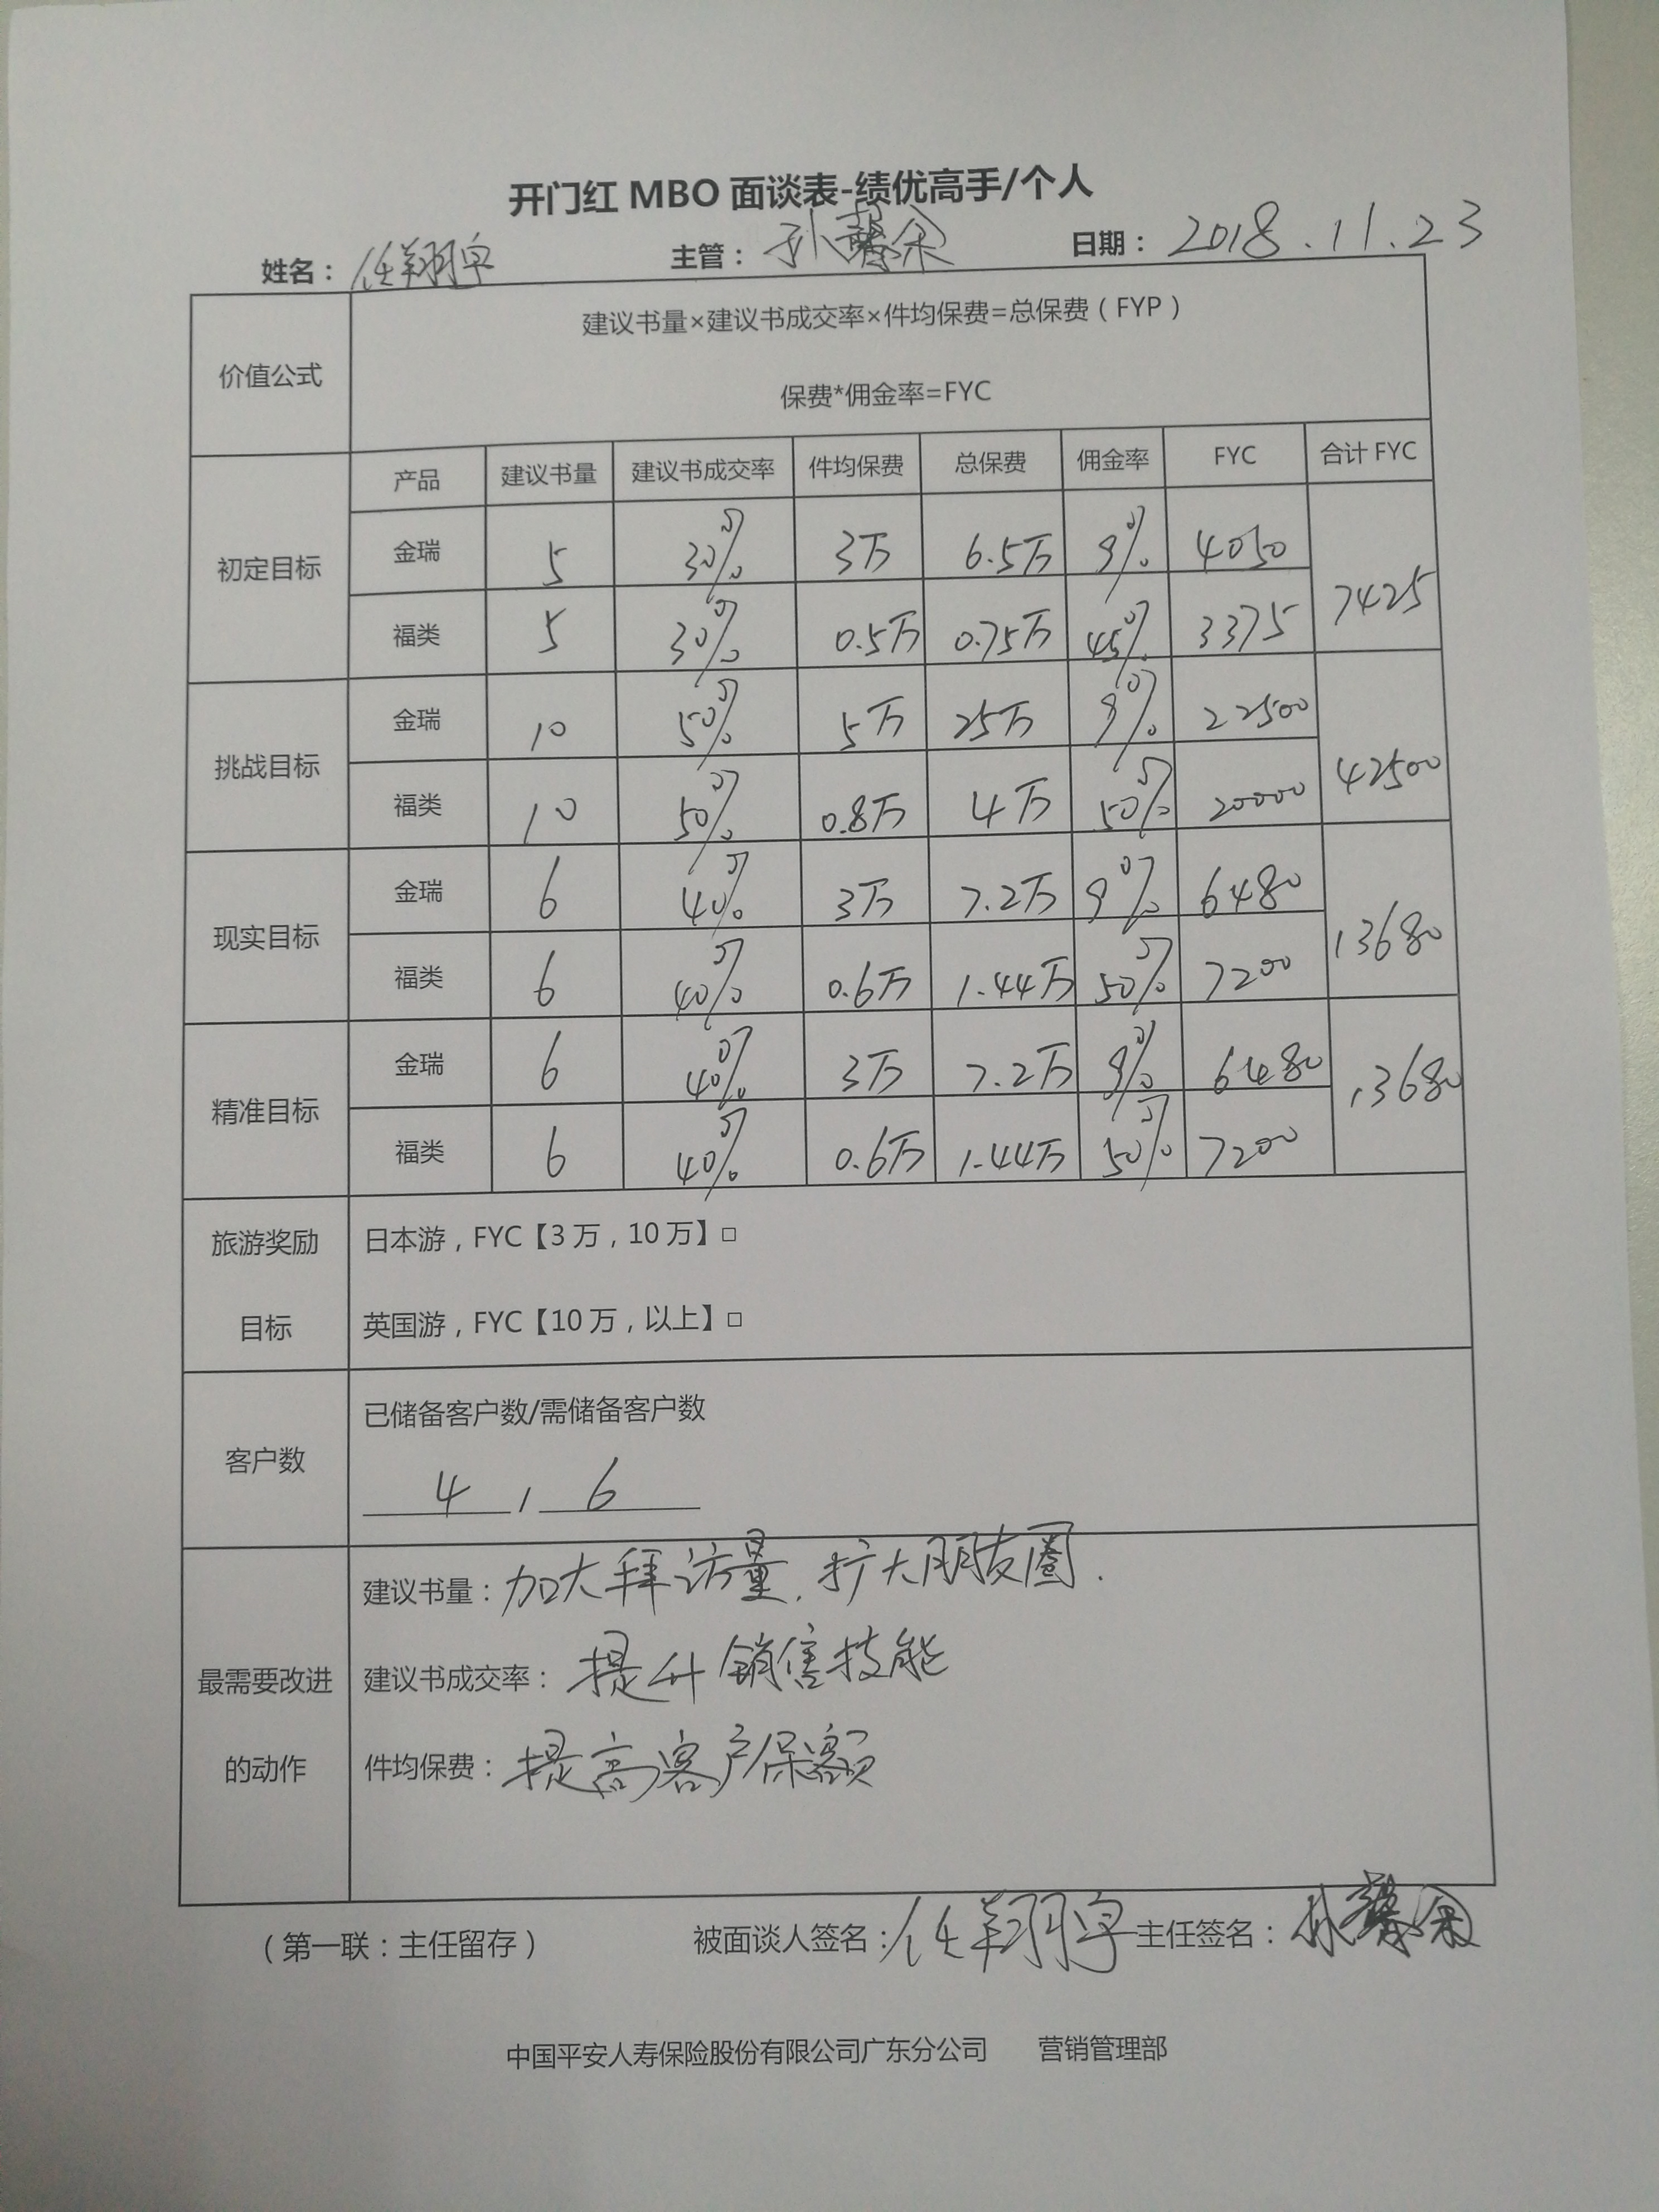 开门红 MBO 面谈表-绩优高手/个人
姓名：任翔宇 主管：孙馨余 日期：2018.11.23
价值公式 建议书量×建议书成交率×件均保费=总保费（FYP）
保费*佣金率=FYC
产品 建议书量 建议书成交率 件均保费 总保费 佣金率 FYC 合计 FYC
初定目标 金瑞 5 30% 3万 6.5万 9% 4050 7425
福类 5 30% 0.5万 0.75万 45% 3375
挑战目标 金瑞 10 50% 5万 25万 9% 22500 42500
福类 10 50% 0.8万 4万 50% 20000
现实目标 金瑞 6 40% 3万 7.2万 9% 6480 13680
福类 6 40% 0.6万 1.44万 50% 7200
精准目标 金瑞 6 40% 3万 7.2万 9% 6480 13680
福类 6 40% 0.6万 1.44万 50% 7200
旅游奖励 日本游，FYC【3 万，10 万】□
目标 英国游，FYC【10 万，以上】□
已储备客户数/需储备客户数
客户数
4 / 6
建议书量：加大拜访量，扩大朋友圈.
最需要改进 建议书成交率：提升销售技能
的动作 件均保费：提高客户保额
（第一联：主任留存） 被面谈人签名：任翔宇 主任签名：孙馨余
中国平安人寿保险股份有限公司广东分公司 营销管理部